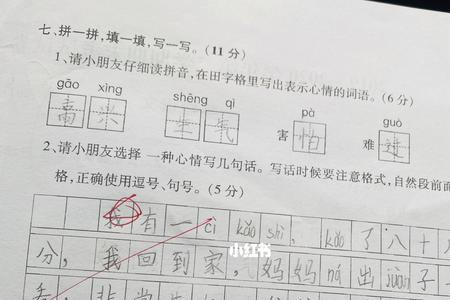 七、拼一拼，填一填，写一写。(11 分)
1、请小朋友仔细读拼音，在田字格里写出表示心情的词语。(6 分)
gāo xìng shēng qì pà guò
生 气 害 怕 难 过
2、请小朋友选择 一种心情写几句话。写话时候要注意格式，自然段前面
格，正确使用逗号、句号。(5 分)
我 有 一 cì kǎo shì， kǎo 了 八 十
分， 我 回 到 家， 妈 妈 ná 出 子
小红书